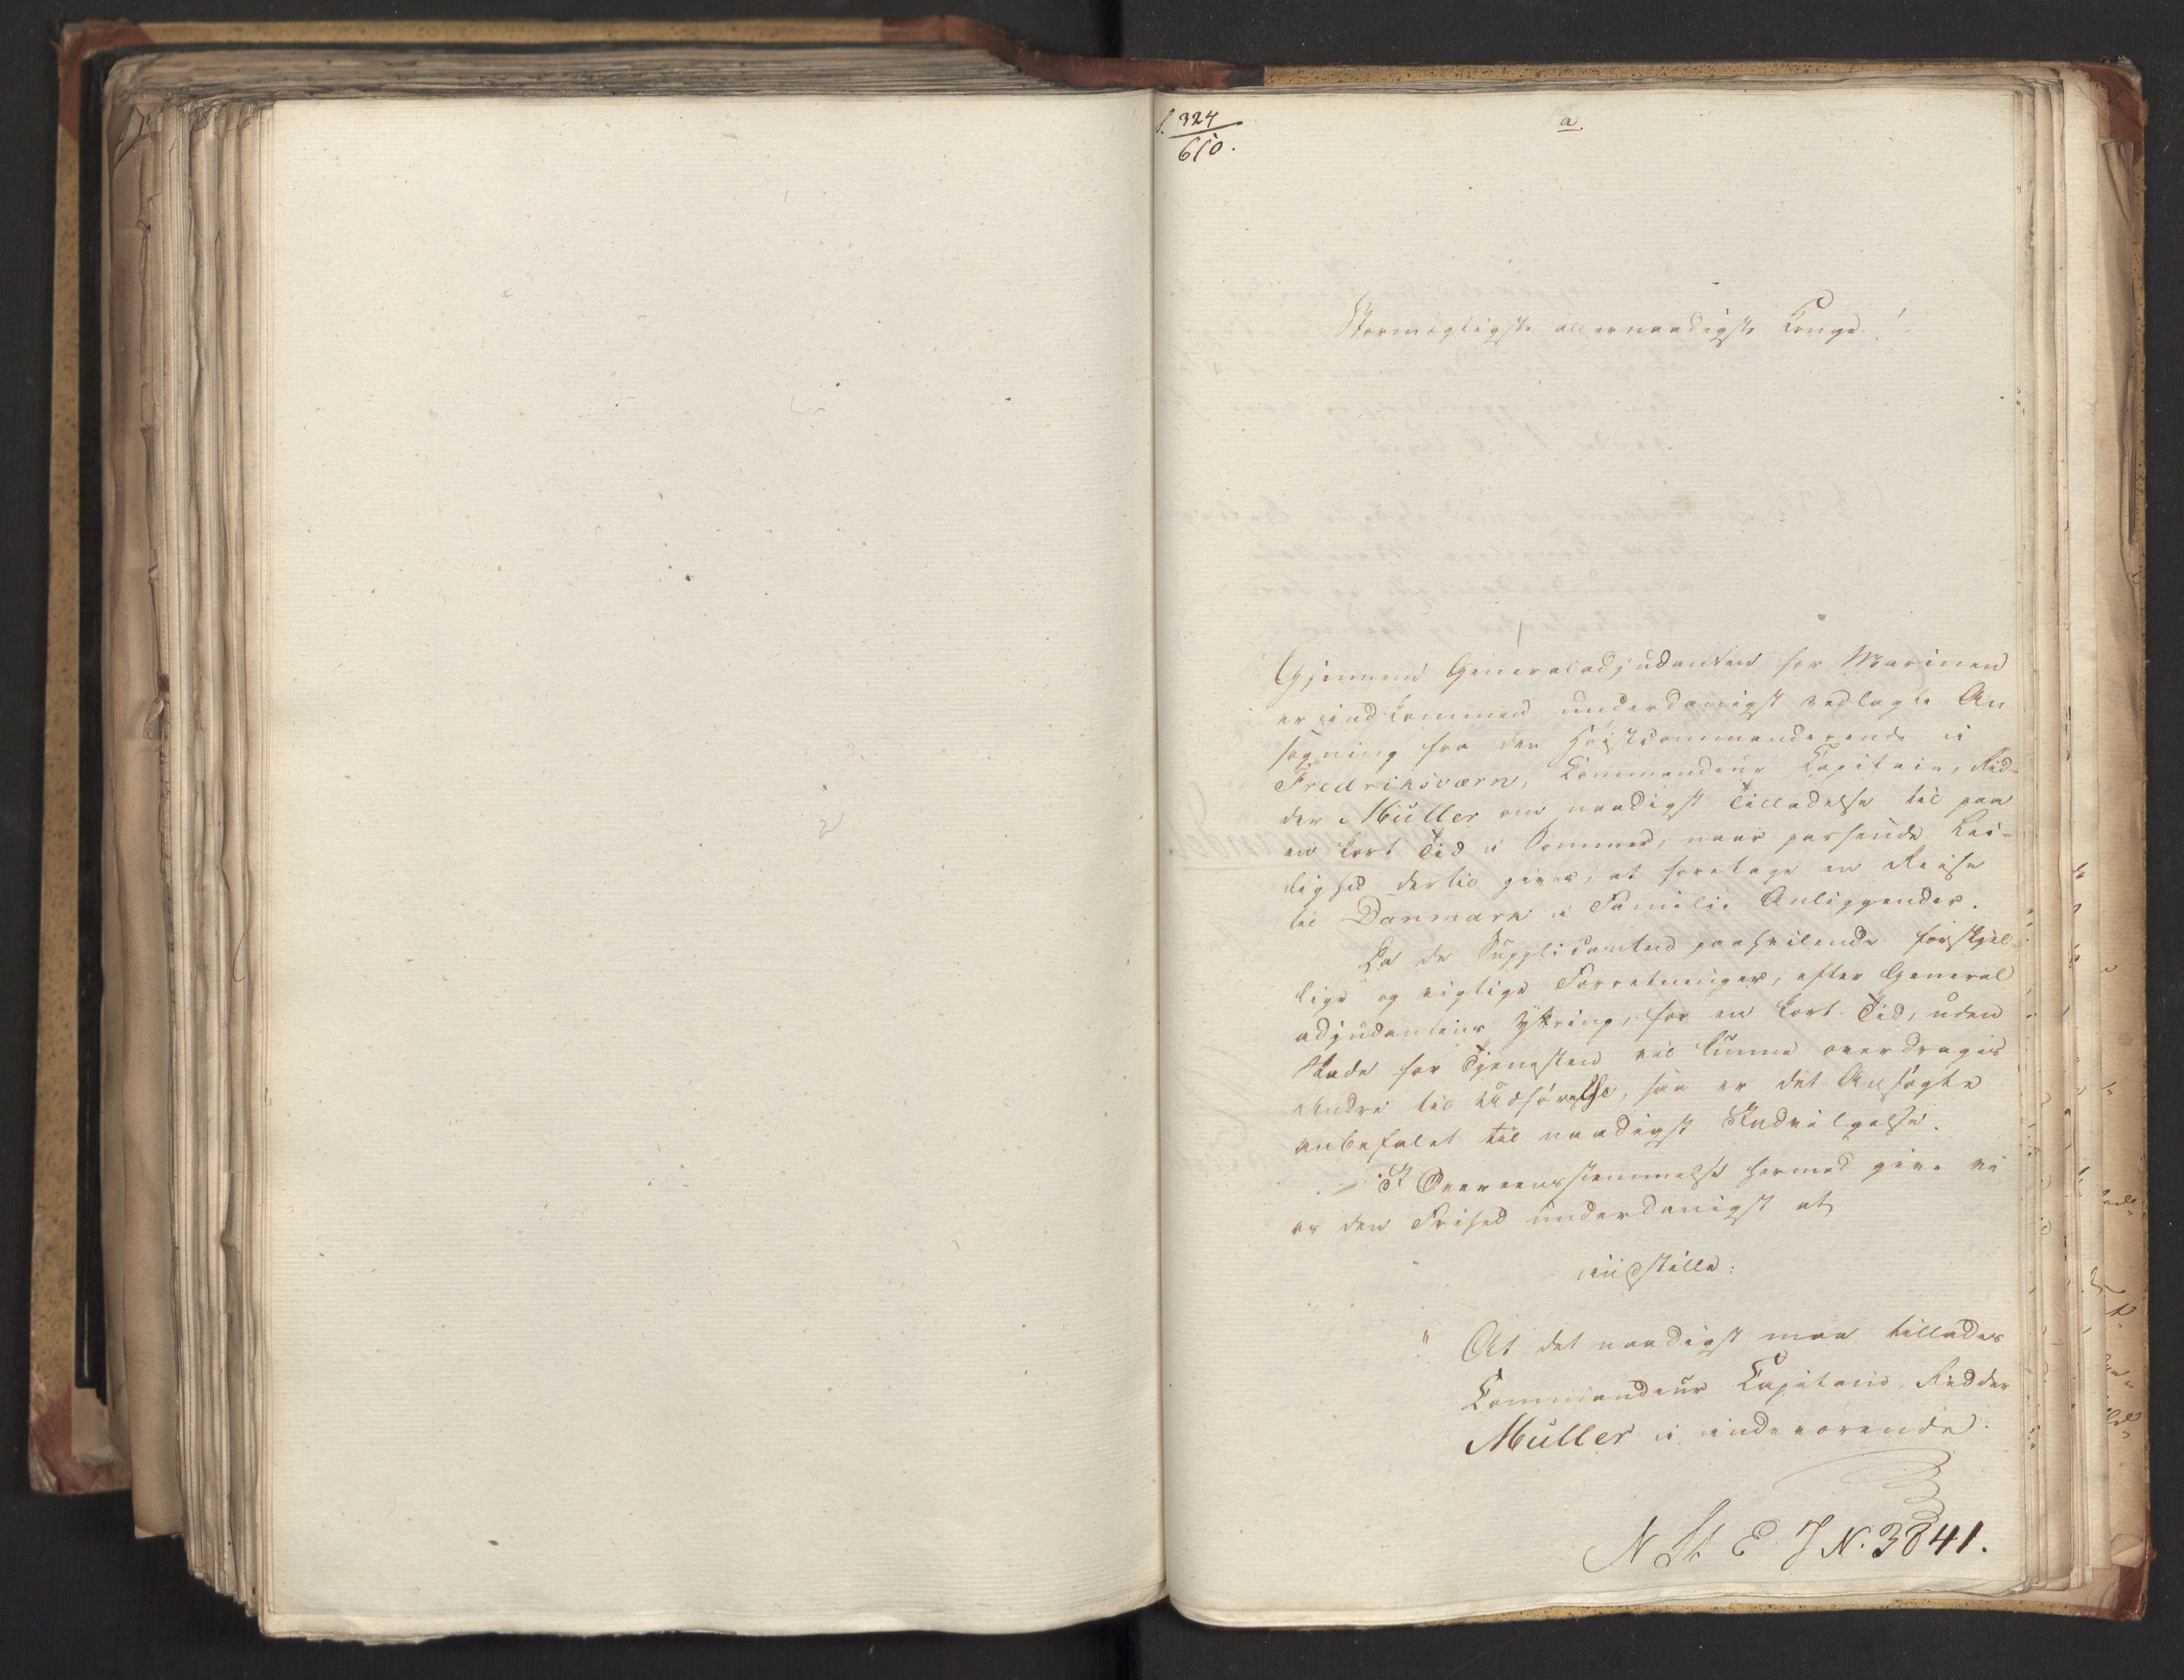 f. 324
610.
a.
Stormægtigste allernaadigste Konge!
Gjennem Generaladjudanten for Marinen
er indkommen underdanigst vedlagte An
søgning fra den Høistcommanderende i
Fredriksværn, Commandeur Capitain, Rid-
der Müller om naadigst Tilladelse til paa
en kort Tid i Sommer, naar passende Lei-
lighed dertil gives, at foretage en Reise
til Danmark i Familie Anliggender.
Da de Supplicanten paahvilende forskjel-
lige og vigtige Forretninger, efter General
adjudantens Yttring, for en kort Tid, uden
Skade for Tjenesten vil kunne overdrages
Andre til Udførelse, saa er det Ansøgte
anbefalet til naadigst Indvilgelse.
I Overeensstemmelse hermed give vi
os den Frihed underdanigst at
indstille:
" At det naadigst maa tillades
Commandeur Capitain, Ridder
Müller i indeværende
N St E J N. 3841.